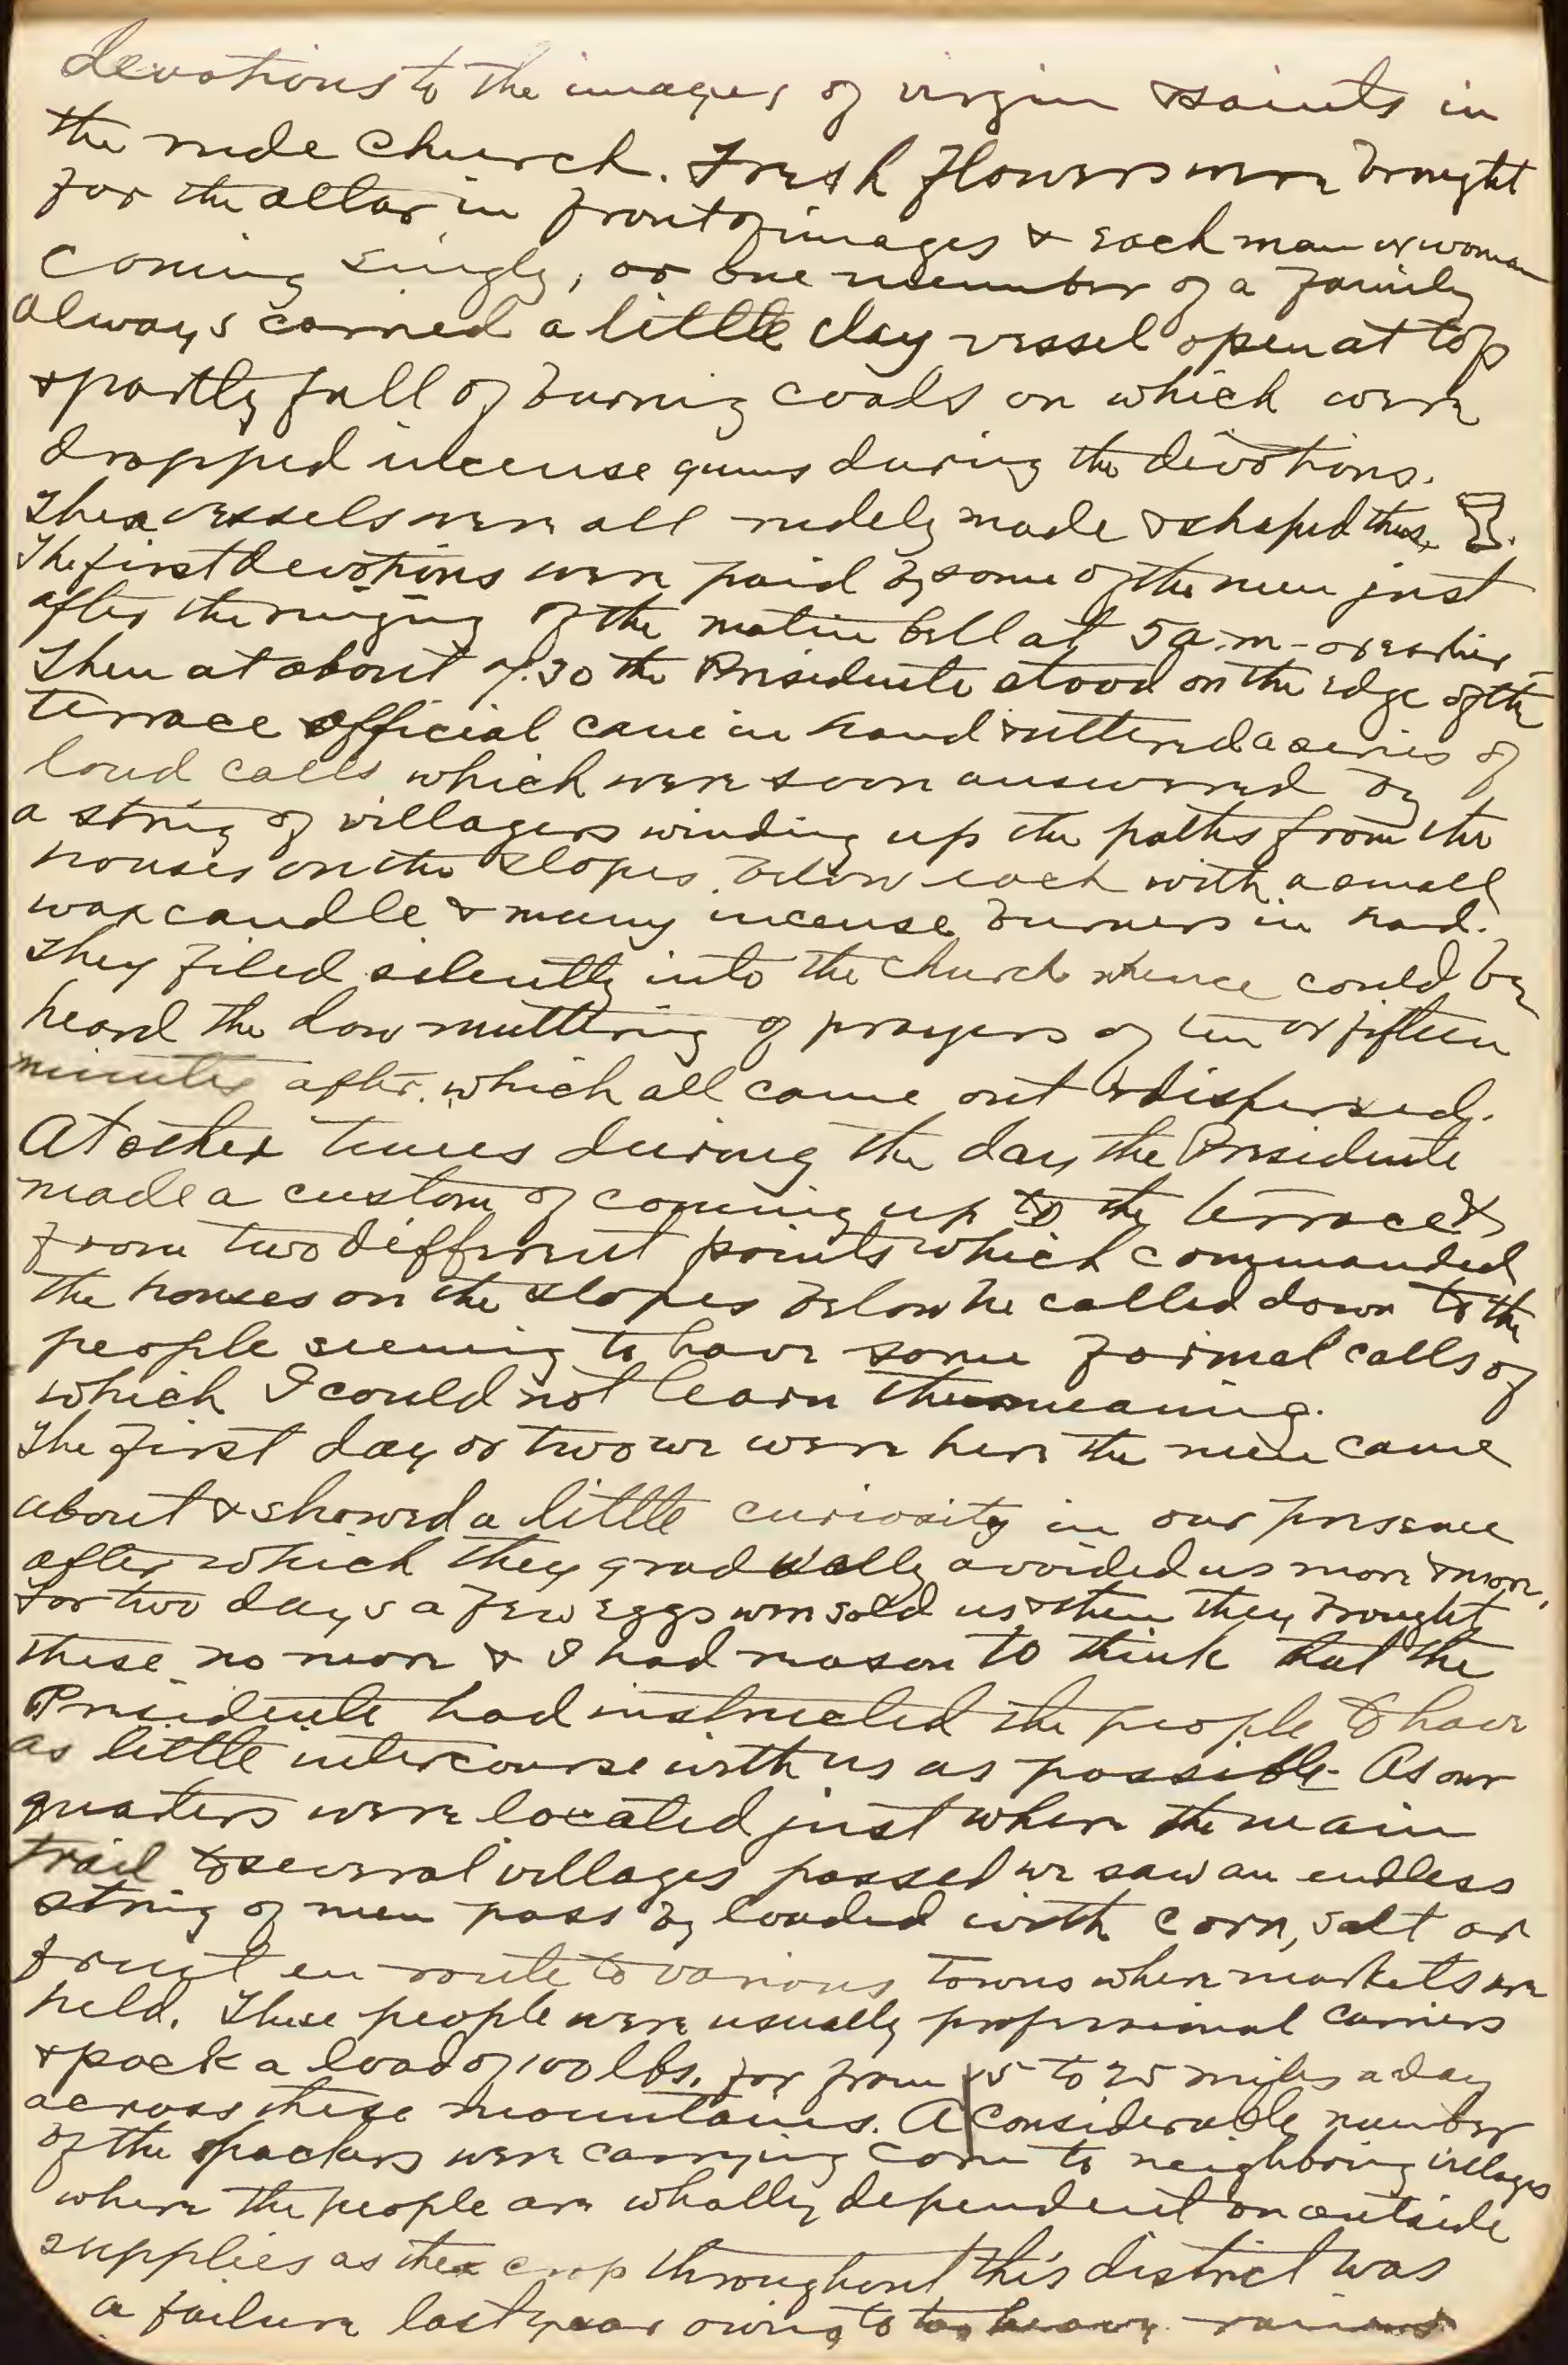 devotions to the images of virgin & saints in
the rude church. Fresh flowers were brought
for the altar in front of images & each man or woman
coming singly, or one member of a family
always carried a little clay vessel open at top
& partly full of burning coals on which were
dropped incense gums during the devotions.
These vessels were all rudely made & shaped thus.
The first devotions were paid by some of the men just
after the ringing of the matin bell at 5 a.m - or earlier -
Then at about 7.30 the Presidente stood on the edge of the
terrace official cane in hand & uttered a series of
loud calls which were soon answered by
a string of villagers winding up the paths from the
houses on the slopes below each with a small
wax candle & many incense burners in hand.
They filed silently into the church whence could be
heard the low muttering of prayers of ten or fifteen
minutes after which all came out & dispersed.
At other times during the day the Presidente
made a custom of coming up to the terrace &
from two different points which commanded
the houses on the slopes below he called down to the
people seeming to have some formal calls of
which I could not learn the meaning.
The first day or two we were here the men came
about & showed a little curiosity in our presence
after which they gradually avoided us more & more.
For two days a few eggs were sold us & then they brought
these no more & I had reason to think that the
Presidente had instructed the people to have
as little intercourse with us as possible. As our
quarters were located just where the main
trail to several villages passed we saw an endless
string of men pass by loaded with corn, salt or
fruit en route to various towns where markets are
held. These people were usually professional carriers
& pack a load of 100 lbs. for from 15 to 25 miles a day
across these mountains. A considerable number
of the packers were carrying corn to neighboring villages
where the people are wholly dependent on outside
supplies as the crop throughout this district was
a failure last year owing to too heavy rains